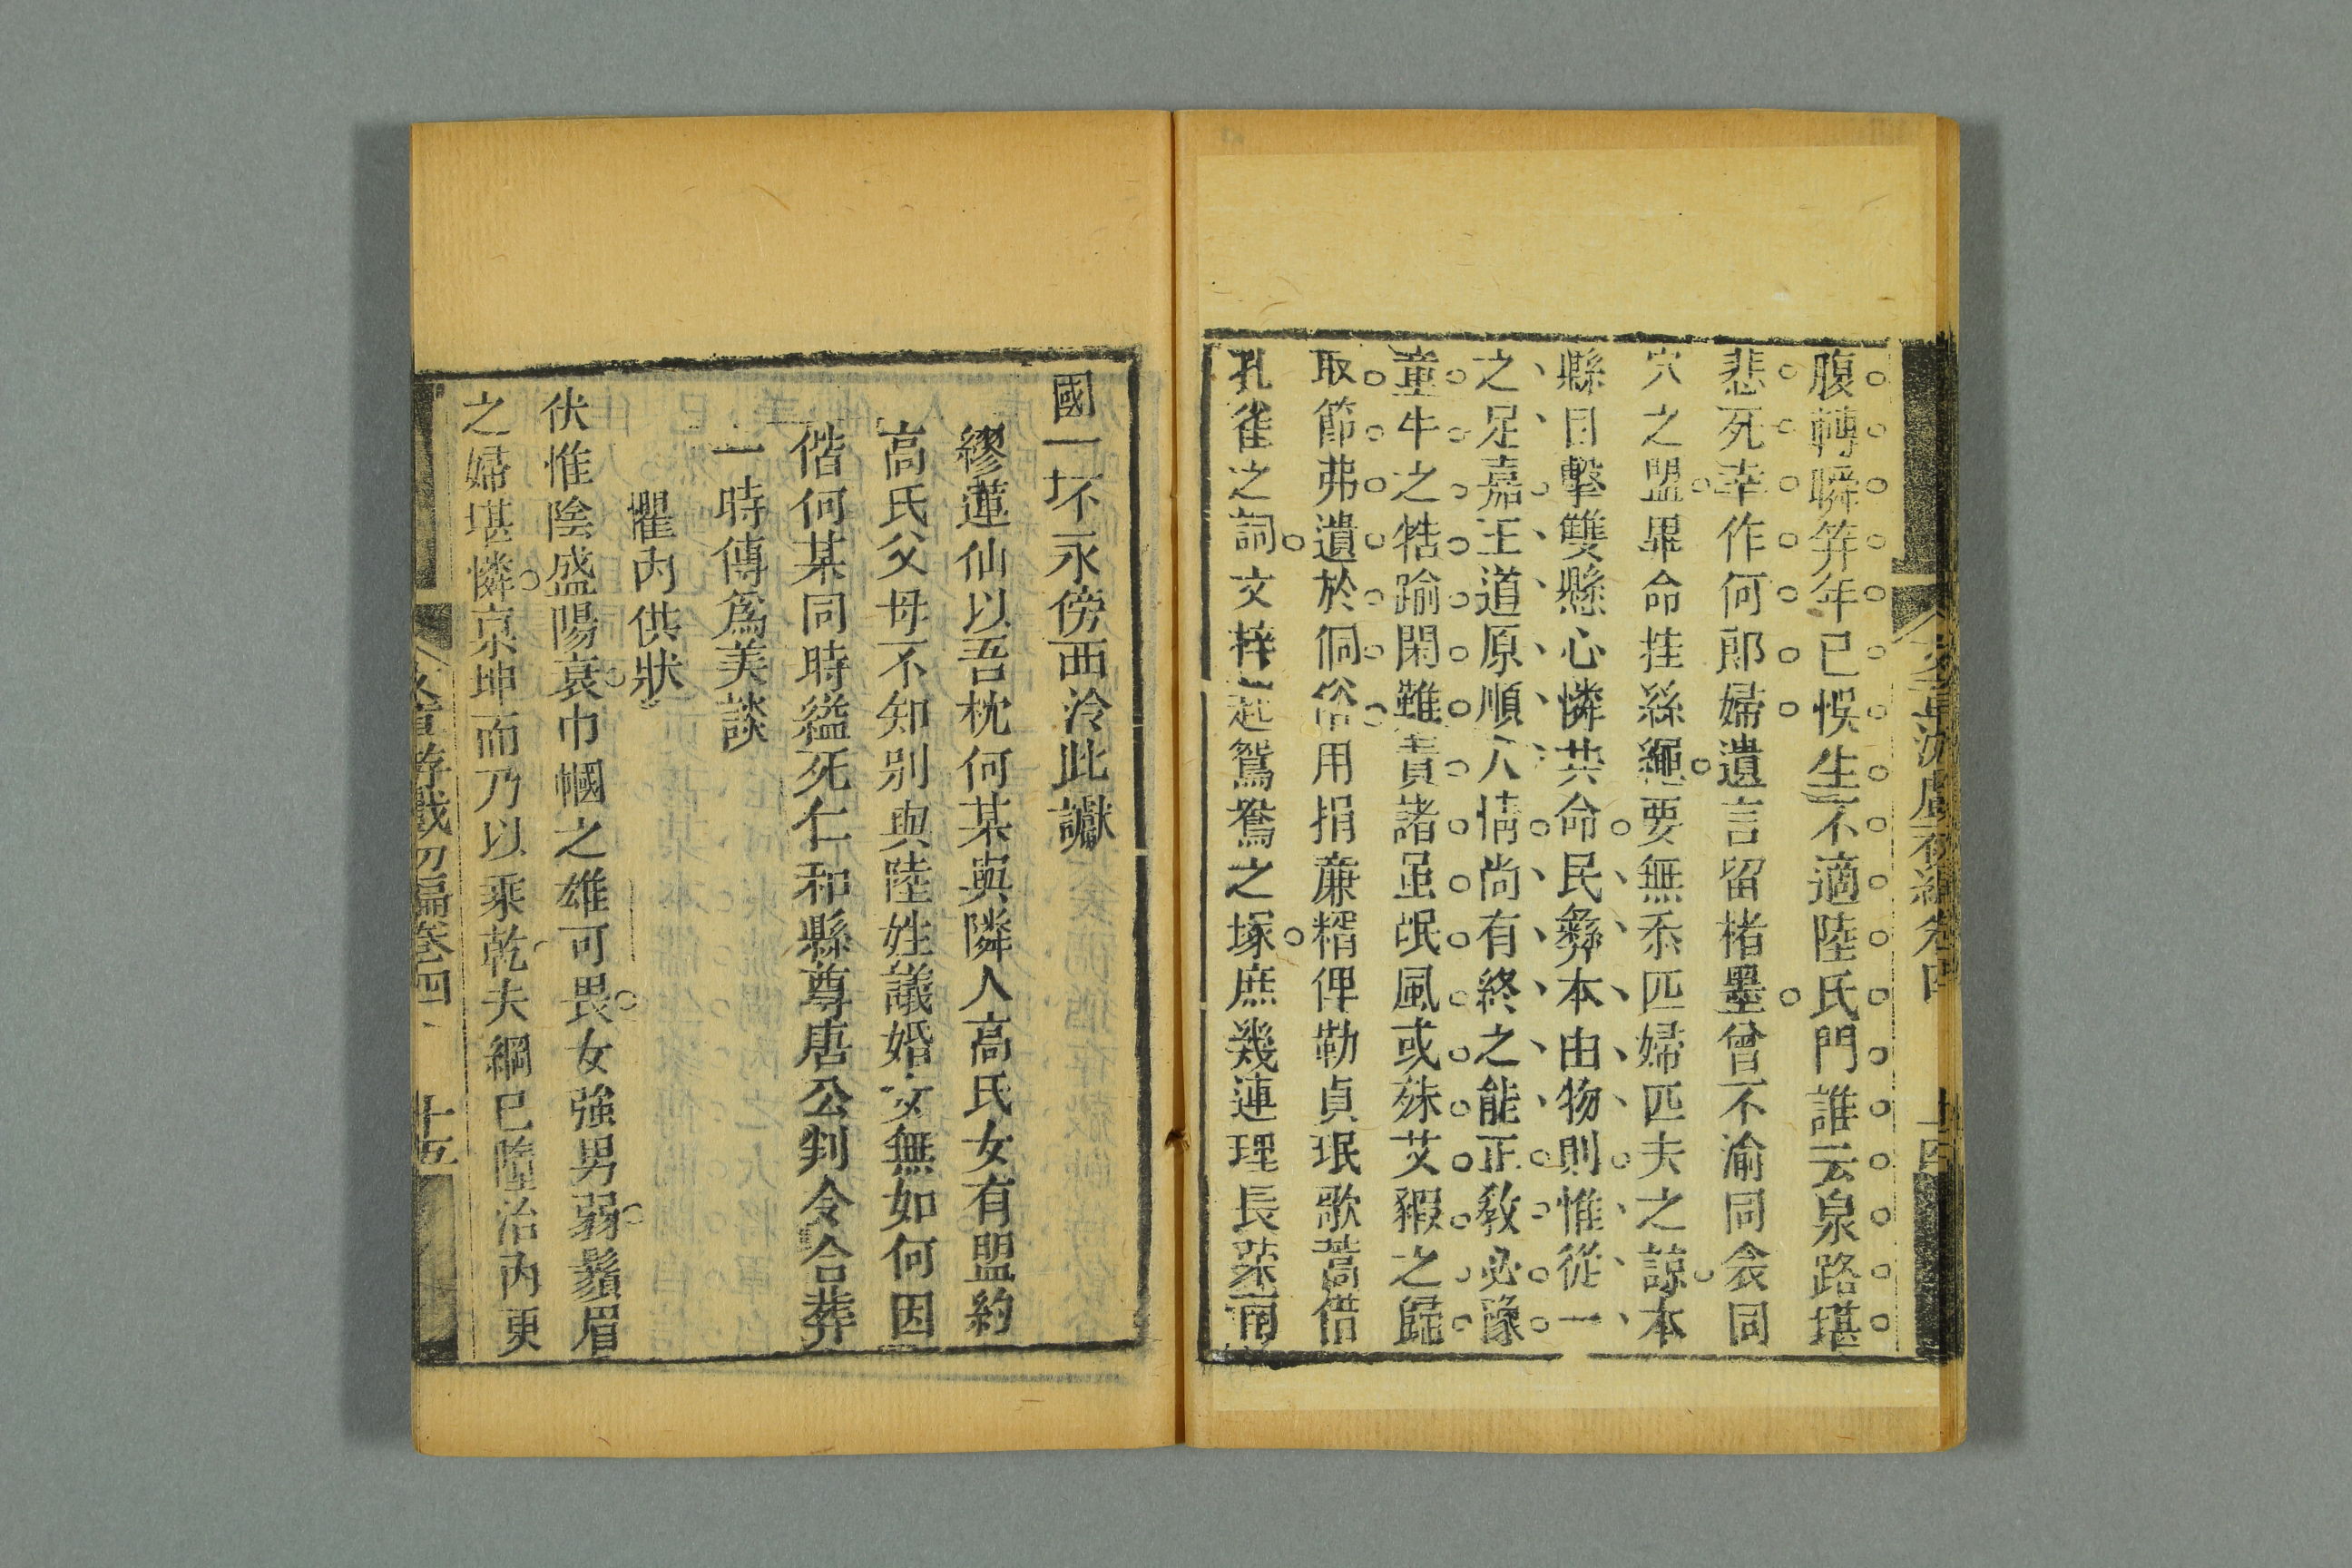 腹轉瞬笄年已悞生不適陸氏門誰云泉路堪
悲死幸作何郎婦遺言留楮墨曾不渝同衾同
穴之盟畢命挂絲繩要無忝匹婦匹夫之諒本
縣目擊雙懸心憐共命民彝本由物則惟從一
之足嘉王道原順人情尚有終之能正敎必豫
童牛之牿踰閑雖責諸虽氓風或殊艾豭之歸
取節弗遺於侗俗用捐廉糈俾勒貞珉歌蒿借
孔雀之詞文梓起鴛鴦之塚庶幾連理長溁南
國一坏永傍西泠此讞
繆蓮仙以吾枕何某與隣人高氏女有盟約
高氏父母不知別與陸姓議婚女無如何因
偕何某同時縊死仁和縣尊唐公判令合葬
一時傳爲美談
懼內供狀
伏惟陰盛陽衰巾幗之雄可畏女強男弱鬚眉
之婦堪憐哀坤而乃以乘乾夫綱已墮治內更
文章游戲初編卷四
十五
文章游戲初編卷四
十四